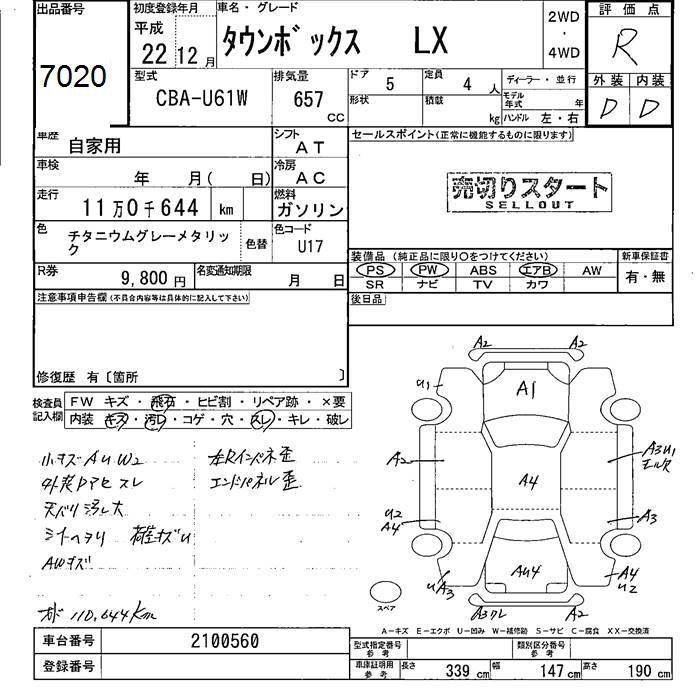 出品番号
7020
初度登録年月
平成
22 12月
車名・グレード
タウンボックス LX
2WD
・
4WD
評価点
R
外装 内装
D D
型式
CBA-U61W
排気量
657
CC
ドア
5
定員
4 人
ディーラー・並行
形状
積載
kg
モデル年式
年
ハンドル 左・右
車歴
自家用
シフト
AT
車検
年 月( 日)
冷房
AC
走行
11万0千644 km
燃料
ガソリン
色
チタニウムグレーメタリック
色替
色コード
U17
R券
9,800円
名変通知期限
月 日
セールスポイント(正常に機能するものに限ります)
売切りスタート
SELLOUT
装備品 (純正品に限り〇をつけてください)
新車保証書
PS PW ABS エアB AW
有・無
SR ナビ TV カワ
後日品
注意事項申告欄(不具合内容等は具体的に記入して下さい)
修復歴 有〔箇所 〕
検査員
記入欄
FW キズ・飛石・ヒビ割・リペア跡・×要
内装 キズ・汚れ・コゲ・穴・スレ・キレ・破レ
小キズ A U W2
外装ドアセ スレ
天バリ汚レ大
シートヘタリ 荷室キズU
AWキズ
左Rインパネ歪
エンドパネル歪
110,644Km
A2 A2
U1
A1
A2
A4
A3U1
U2
A4
A3
AU4
U A3
A4
U2
A3ワレ A2
スペア
A-キズ E-エクボ U-凹み W-補修跡 S-サビ C-腐食 XX-交換済
車台番号
2100560
登録番号
型式指定番号
参考
類別区分番号
参考
車庫証明用
参考
長さ 339 cm
幅 147 cm
高さ 190 cm